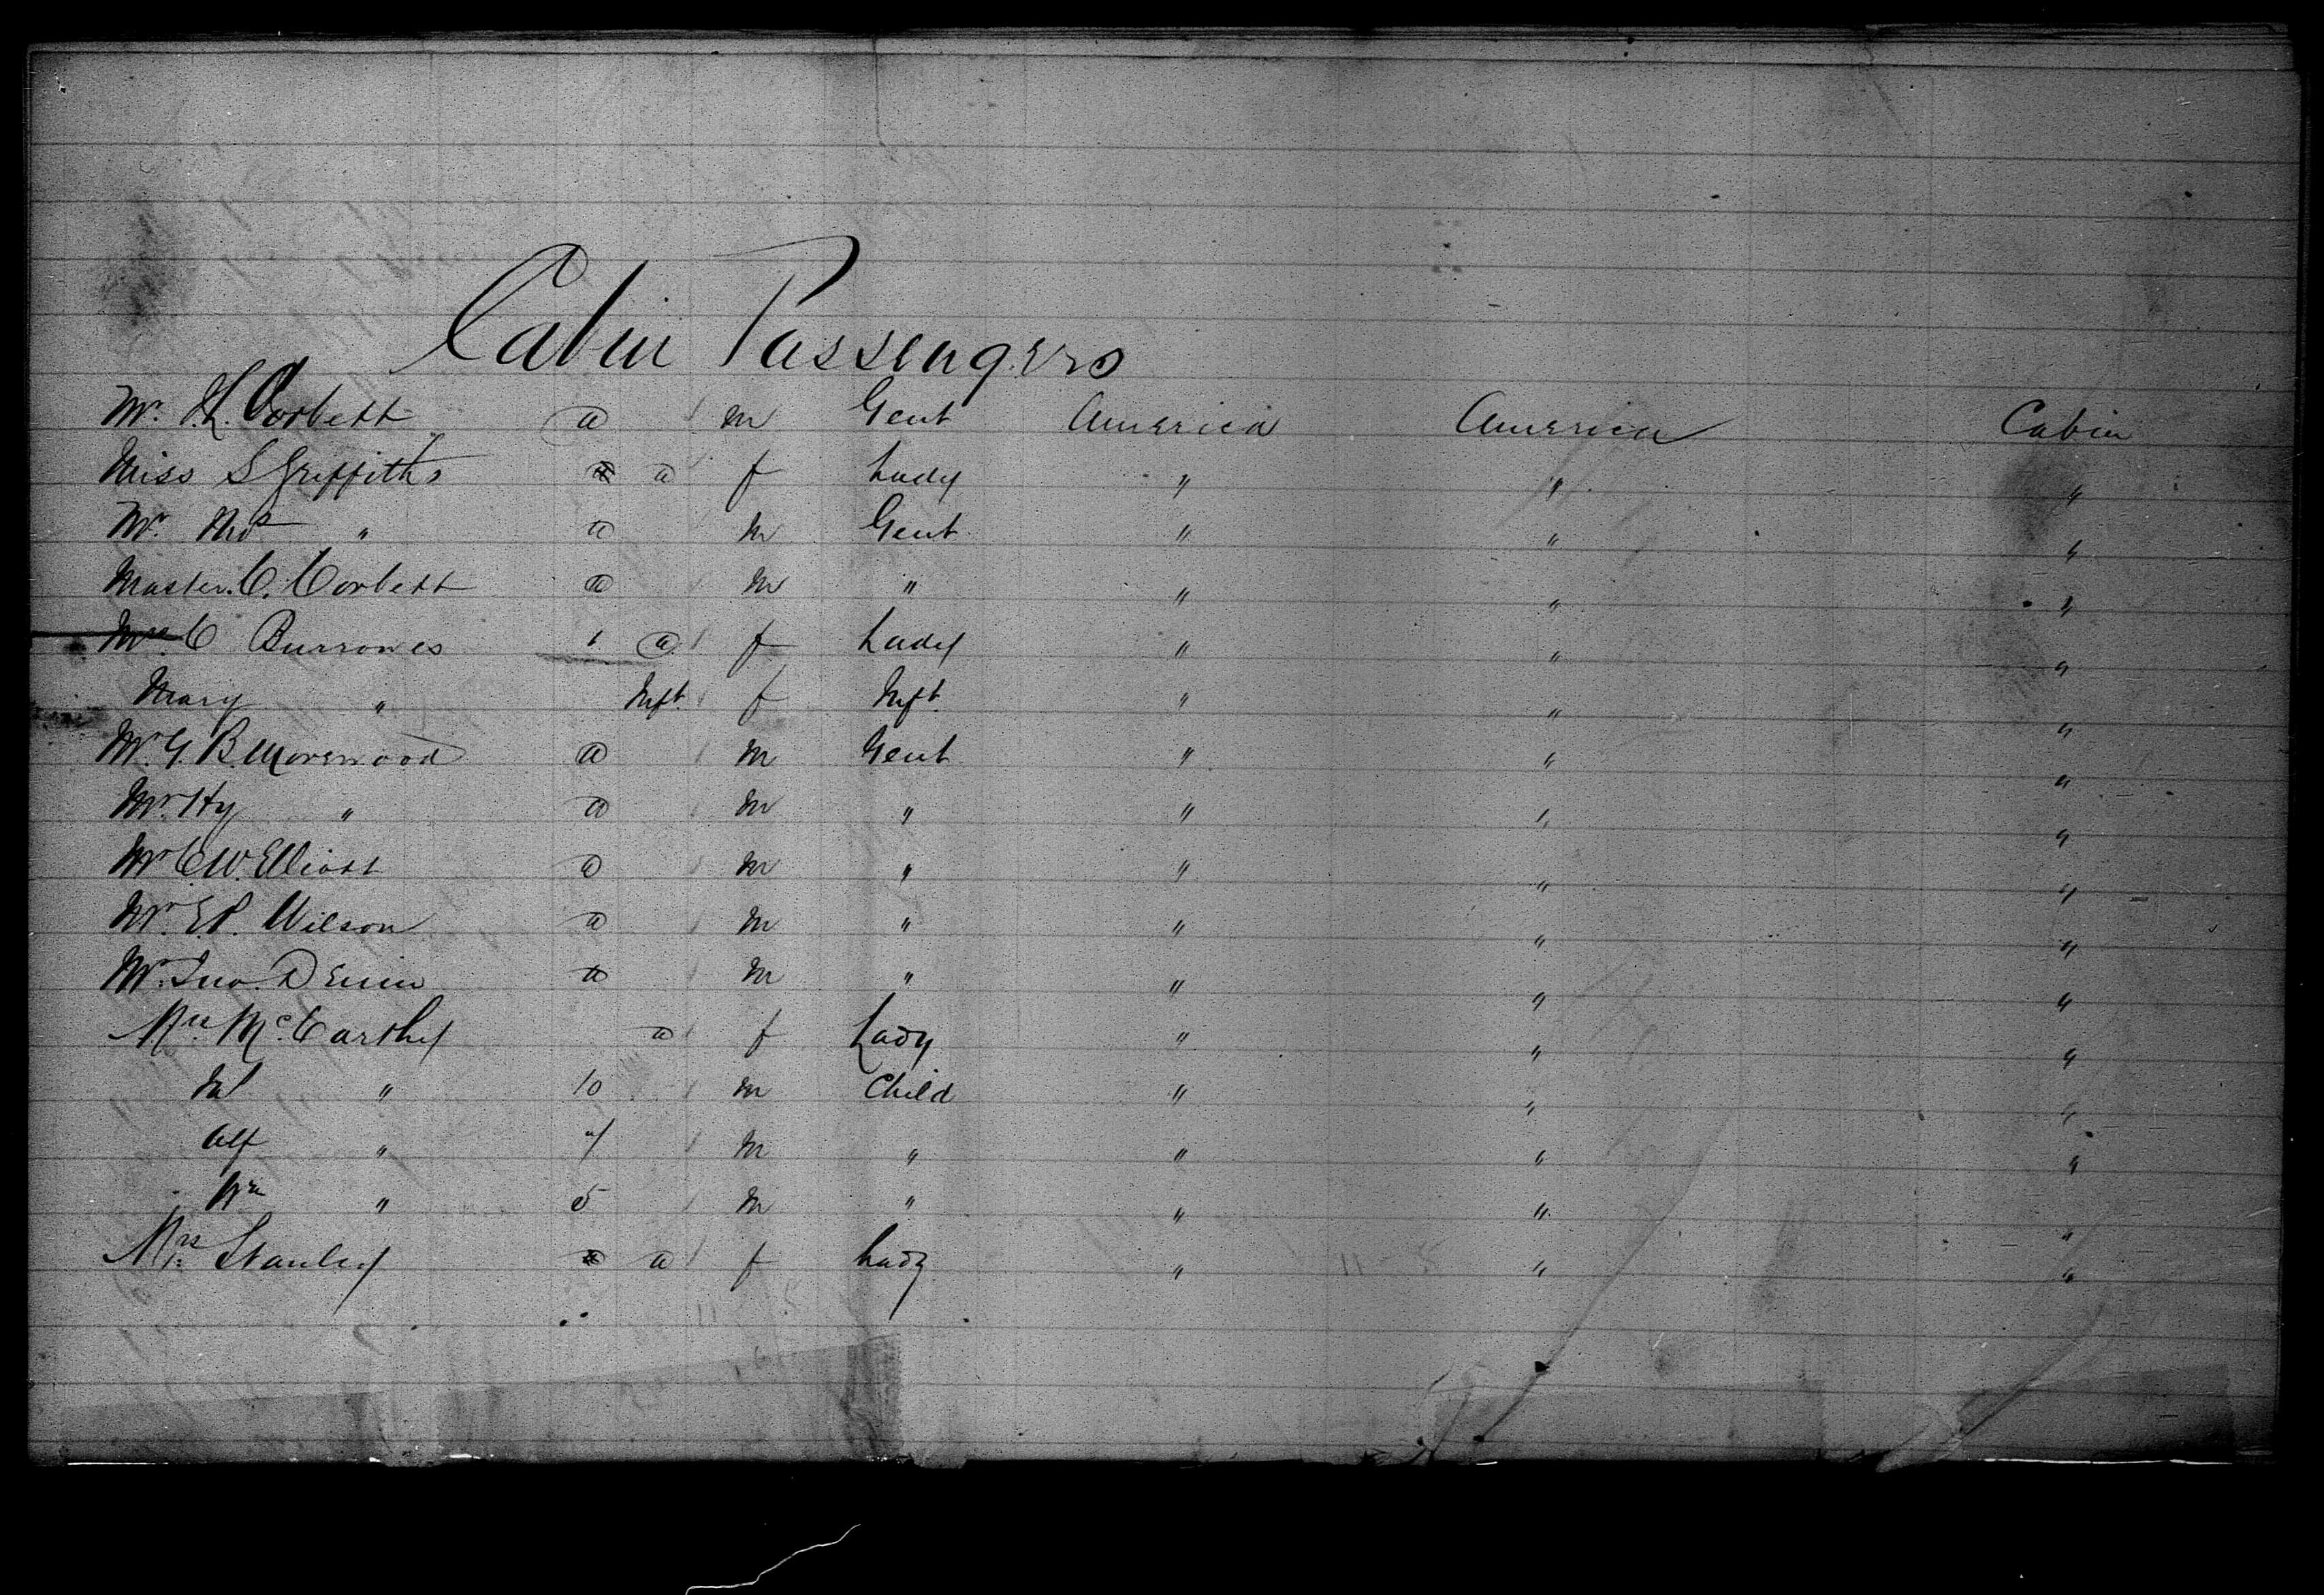 Cabin Passengers
Mr. H. Corbett a m Gent America America Cabin
Miss S Griffiths a f Lady " " "
Mr. Thos " a m Gent " " "
Master C. Corbett a m " " " "
Mrs. C Burrowes 1 a f Lady " " "
Mary " Inft. f Inft. " " "
Mr. G. B. Morewood a m Gent " " "
Mr. Hy " a m " " " "
Mr. C. W. Elliott a m " " " "
Mr. E. P. Wilson a m " " " "
Mr. Jno. Denin a m " " " "
Mrs. McCarthy a f Lady " " "
" 10 m Child " " "
Alf " 7 m " " " "
Wm " 5 m " " " "
Mrs. Stanley a f Lady " " "